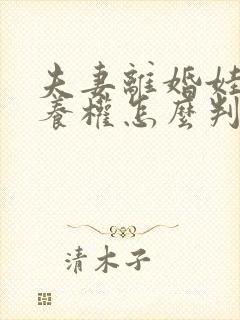 夫妻離婚娃
養權怎麼判
清木子